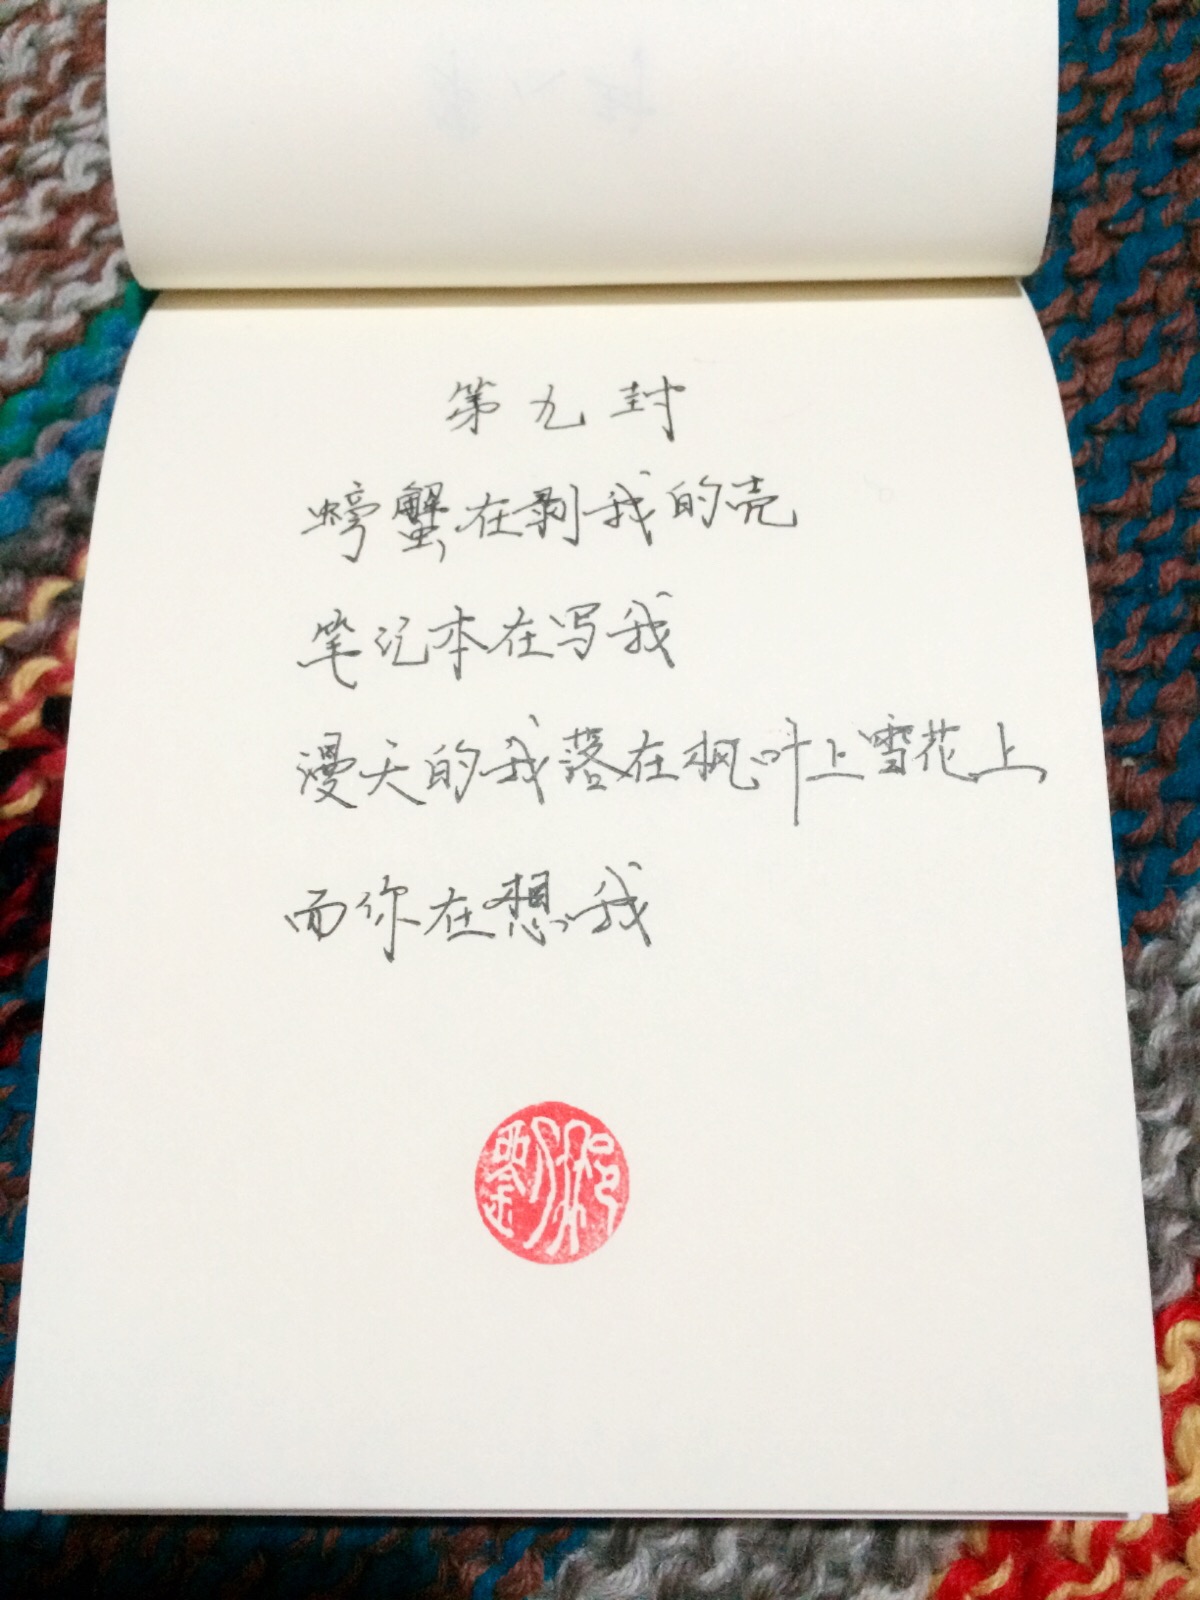 第九封
螃蟹在剥我的壳
笔记本在写我
漫天的我落在枫叶上雪花上
而你在想我